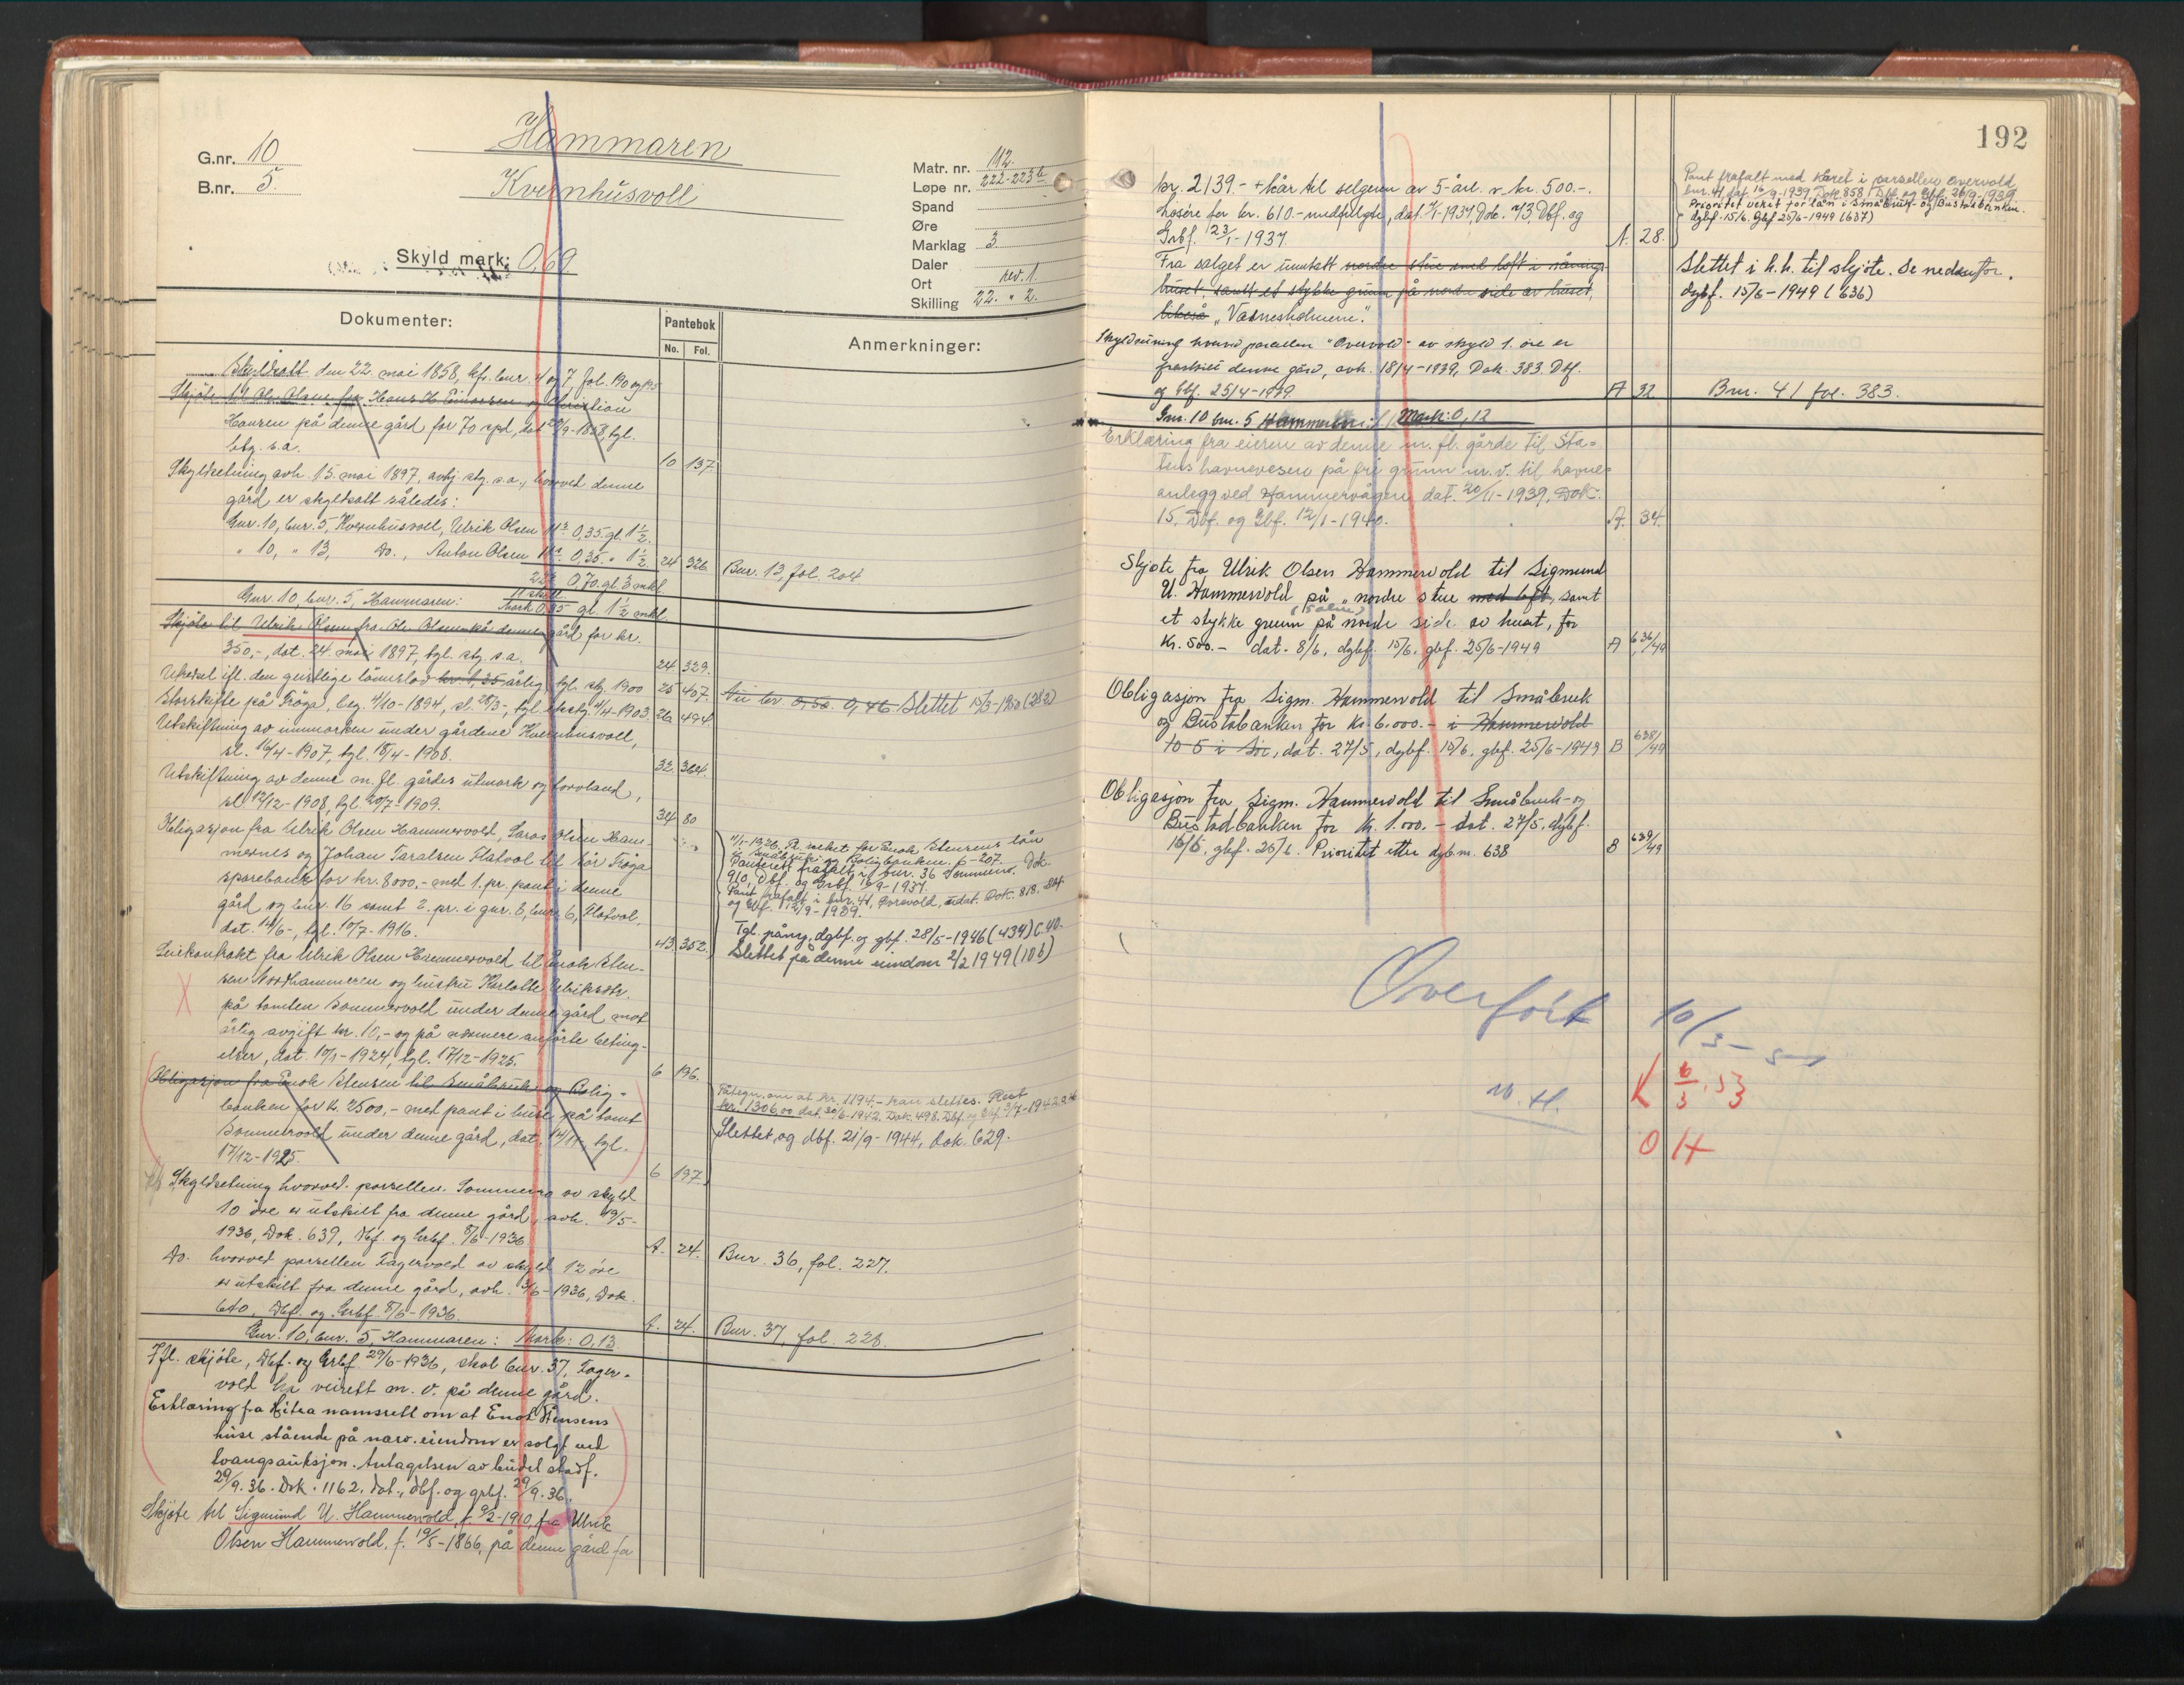 G.nr. 10
B.nr. 5.
Hammaren
Kvernhusvoll
Skyld mark: 0,69
Matr. nr. 112.
Løpe nr. 222-223b
Spand
Øre
Marklag 3
Daler
Ort rev. 1.
Skilling 22. " 2.
Dokumenter:
Pantebok
No. Fol.
Anmerkninger:
Skyldsatt den 22 mai 1858, kfr. bnr. 4 og 7, fol. 190 og 195
Skjøte til Ole Olsen fra Hans H. Einarsen og Christian
Hansen på denne gård for 70 spd, dat. 29/9-1858, tgl.
s.a. 10 137.
Skyldsetning avh. 15. mai 1897, avhj. stg. s.a., hvorved denne
gård er skyldsatt således:
Gnr. 10, bnr. 5, Kvernhusvoll, Ulrik Olsen 0,35. gl. 1½.
" 10, " 13, Do., Anton Olsen 0,35. " 1½. 24 326. Bnr. 13, fol. 204
0,70. gl. 3 mkl.
Gnr. 10, bnr. 5, Hammaren: Mark 0,35 gl. 1½ mkl.
Skjøte til Ulrik Olsen fra Ole Olsen på denne gård for kr.
350,-, dat. 24. mai 1897, tgl. stg. s.a. 24 329.
Utredsel ifl. den geistlige lønnslov kr. 1,35 årlig, tgl. stg. 1900 25 407. Nu kr. 0,50. 0,46 Slettet 15/3-1950 (282)
Storskifte på Frøya, beg. 4/10-1894, sl. 28/3-, tgl. stg. 4/4-1903 26 494
Utskiftning av innmarken under gårdene Kvernhusvoll,
sl. 16/4-1907, tgl. 15/4-1908. 32 364.
Utskiftning av denne m. fl. gårdes utmark og torvland,
sl. 12/12-1908, tgl. 20/7-1909. 34 80
Obligasjon fra Ulrik Olsen Hammervold, Laras Olsen Ham-
mernes og Johan Taralsen Flatval til Sør Frøya
sparebank for kr. 8000,- med 1. pr. pant i denne
gård og bnr. 16 samt 2. pr. i gnr. 8, bnr. 6, Flatval,
dat. 14/6-, tgl. 10/7-1916. 43. 352.
11/1-1926. Pr. veket for Enok Stensens lån
i Småbruk- og Boligbanken. 6-207.
Panterett frafalt i bnr. 36 Sommerro. Dok.
910, Dbf. og Grbf. 15/9-1937.
Pant frafalt i bnr. 41, Overvold, udat. Dok. 818. Dbf.
og Gbf. 12/9-1939.
Tgl. påny, dgbf. og gbf. 28/5-1946 (439) C. 40.
Slettet på denne eiendom 2/2 1949 (106)
Leiekontrakt fra Ulrik Olsen Hammervold til Enok Sten-
sen Nordhammeren og hustru Karlotte Ulriksdtr.
på tomten Sommervold under denne gård mot
årlig avgift kr. 10,- og på nærmere anførte beting-
elser, dat. 10/1-1924, tgl. 17/12-1925. 6 196.
Obligasjon fra Enok Stensen til Småbruk- og Bolig-
banken for kr. 2500,- med pant i huse på tomt
Sommervold under denne gård, dat. 14/11, tgl.
17/12-1925. 6 197.
Påtegn. om at kr. 1194,- kan slettes. Rest
kr. 1306,00 dat. 30/6-1942. Dok. 498. Dbf. og Gbf. 3/7-1942
Slettet, og dbf. 21/9-1944, dok. 629.
Skyldsetning hvorved parsellen Sommerro av skyld
10 øre er utskilt fra denne gård, avh. 19/5-
1936, Dok. 639, Dbf. og Grbf. 8/6-1936 A. 24. Bnr. 36, fol. 227.
Do. hvorved parsellen Fagervold av skyld 12 øre
er utskilt fra denne gård, avh. 3/6-1936, Dok.
640, Dbf. og Grbf. 8/6-1936. A. 24. Bnr. 37, fol. 228.
Gnr. 10, bnr. 5, Hammaren: Mark: 0,13
Ifl. skjøte, Dbf. og Grbf. 29/6-1936, skal bnr. 37, Fager-
vold ha veirett m. v. på denne gård.
Erklæring fra Hitra namsrett om at Enok Stensens
huse stående på nærv. eiendom er solgt ved
tvangsauksjon. Antagelsen av budet stadf.
29/9.36. Dok. 1162, dat., dbf. og grbf. 29/9.36.
Skjøte til Sigmund U. Hammervold, f. 9/2-1910, fra Ulrik
Olsen Hammervold, f. 19/5-1866, på denne gård for
192
kr. 2139.- + kår til selgeren av 5-årl. v. kr. 500.-.
Løsøre for kr. 610.- medfølgte, dat. 4/1-1937, Dok. 73, Dbf. og
Grbf. 23/1-1937. A. 28.
Pant frafalt med kåret i parsellen Overvold,
bnr. 41, dat. 16/9-1939, Dok. 858, Dbf. og Gbf. 26/9-1939.
Prioritet veket for lån i Småbruk- og Bustadbanken.
dgbf. 15/6. gbf 25/6-1949 (637)
Slettet i h.h. til skjøte. Se nedenfor.
dgbf. 15/6-1949 (636)
Fra salget er unntatt nordre stue med loft i vånings-
huset, samt et stykke grunn på nordre side av huset,
likeså "Værnesholmene".
Skyldn. hvorved parsellen "Overvold" av skyld 1. øre er
fraskilt denne gård, avh. 18/4-1939, Dok. 383. Dbf.
og Gbf. 25/4-1939. A 32 Bnr. 41 fol. 383.
Gnr. 10 bnr. 5 Hammeren: Mark: 0,12
Erklæring fra eieren av denne m. fl. gårde til Sta-
tens havnevesen på fri grunn m.v. til havne-
anlegg ved Hammervågen dat. 20/11-1939, Dok.
15, Dbf. og Gbf. 12/1-1940. A. 34.
Skjøte fra Ulrik Olsen Hammervold til Sigmund
U. Hammervold på "nordre stue med loft, samt
et stykke grunn på nordre side av huset, for
kr. 500.- dat. 8/6, dgbf. 15/6, gbf. 25/6-1949 A 636/49
Obligasjon fra Sigm. Hammervold til Småbruk
og Bustadbanken for kr. 6.000.- i Hammervold
10-5 i Sør, dat. 27/5, dgbf. 15/6, gbf. 25/6-1949 B 638/49
Obligasjon fra Sigm. Hammervold til Småbruk- og
Bustadbanken for kr. 1.000.- dat. 27/5, dgbf.
15/6, gbf. 25/6. Prioritet etter dgb.nr. 638 B 639/49
Overført 10/3-5
K 6/3.53
OH